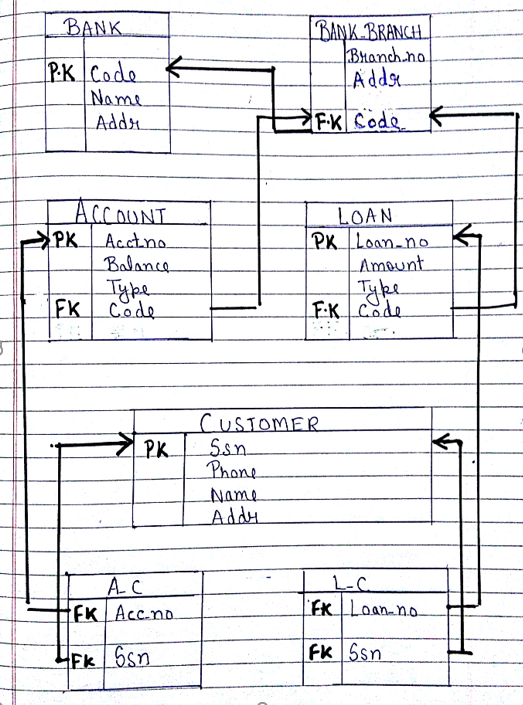 BANK
P.K Code
Name
Addr
BANK-BRANCH
Branch_no
Addr
F.K Code
ACCOUNT
PK Acct.no
Balance
Type
FK Code
LOAN
PK Loan_no
Amount
Type
F.K Code
CUSTOMER
PK Ssn
Phone
Name
Addr
A_C
FK Acc_no
FK Ssn
L-C
FK Loan_no
FK Ssn